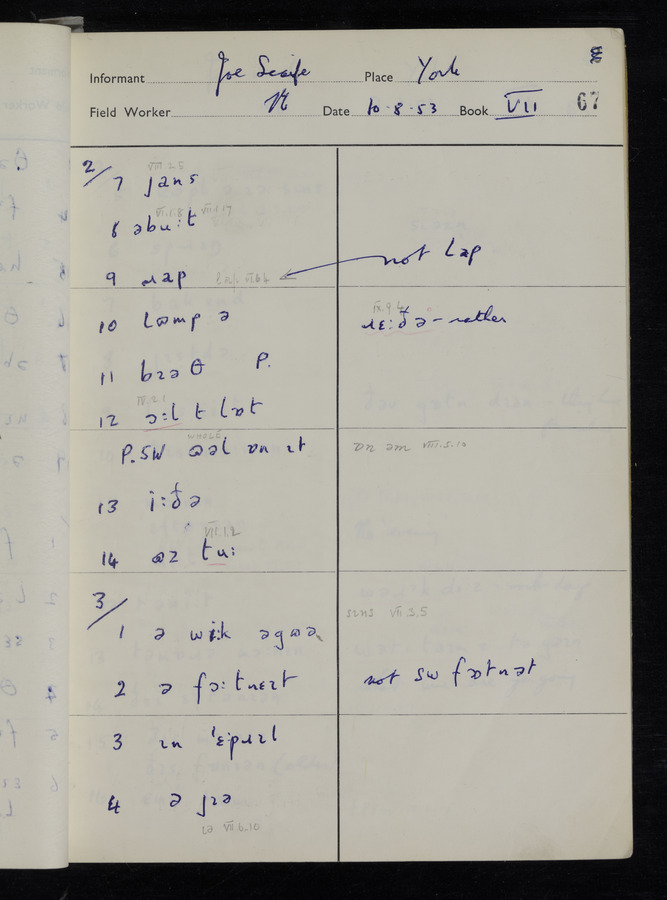 Informant Joe Scaife Place York
Field Worker N Date 10·8·53 Book VII 67
2/
VIII.2.5
7 jans
VI.1.8 VII.1.17
8 əbu:t
9 ɹap lap VI.6.4 not lap
10 lɷmp ə
IX.9.6
ɹɛ:ðə - rather
11 bɪəθ P.
IV.2.1
12 ɔ:l t lɒt
WHOLE
P.SW ɷəl ɒn ɪt
ɒn əm VIII.5.10
13 i:ðə
VII.1.2
14 ɷz tu:
3/
sɪns VII.3.5
1 ə wi:k əgɷə
2 ə fɔ:tnɛɪt not SW fɔtnət
3 ɪn 'ɛ:pɹɪl
4 ə jɪə
ɪə VII.6.10